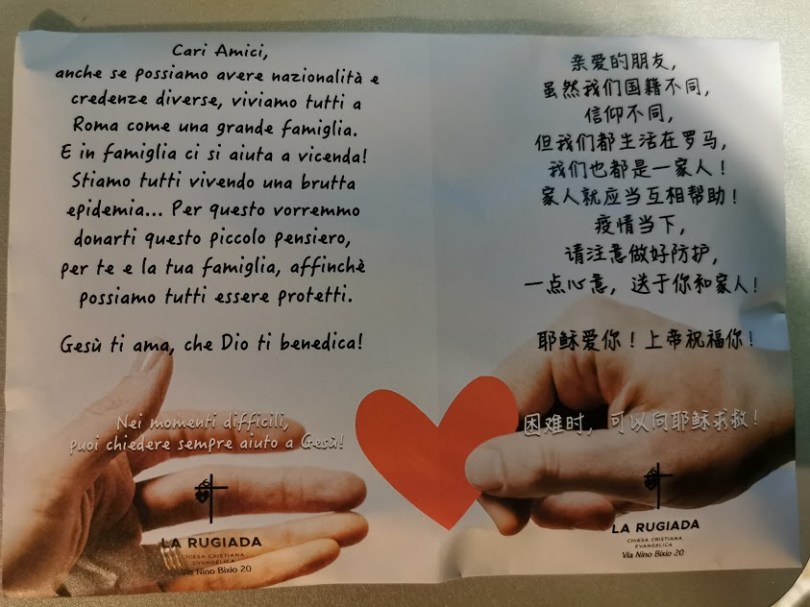 Cari Amici,
anche se possiamo avere nazionalità e
credenze diverse, viviamo tutti a
Roma come una grande famiglia.
E in famiglia ci si aiuta a vicenda!
Stiamo tutti vivendo una brutta
epidemia... Per questo vorremmo
donarti questo piccolo pensiero,
per te e la tua famiglia, affinchè
possiamo tutti essere protetti.
Gesù ti ama, che Dio ti benedica!
Nei momenti difficili,
puoi chiedere sempre aiuto a Gesù!
LA RUGIADA
CHIESA CRISTIANA
EVANGELICA
Via Nino Bixio 20
亲爱的朋友，
虽然我们国籍不同，
信仰不同，
但我们都生活在罗马，
我们也都是一家人！
家人就应当互相帮助！
疫情当下，
请注意做好防护，
一点心意，送于你和家人！
耶稣爱你！上帝祝福你！
困难时，可以向耶稣求救！
LA RUGIADA
CHIESA CRISTIANA
EVANGELICA
Via Nino Bixio 20